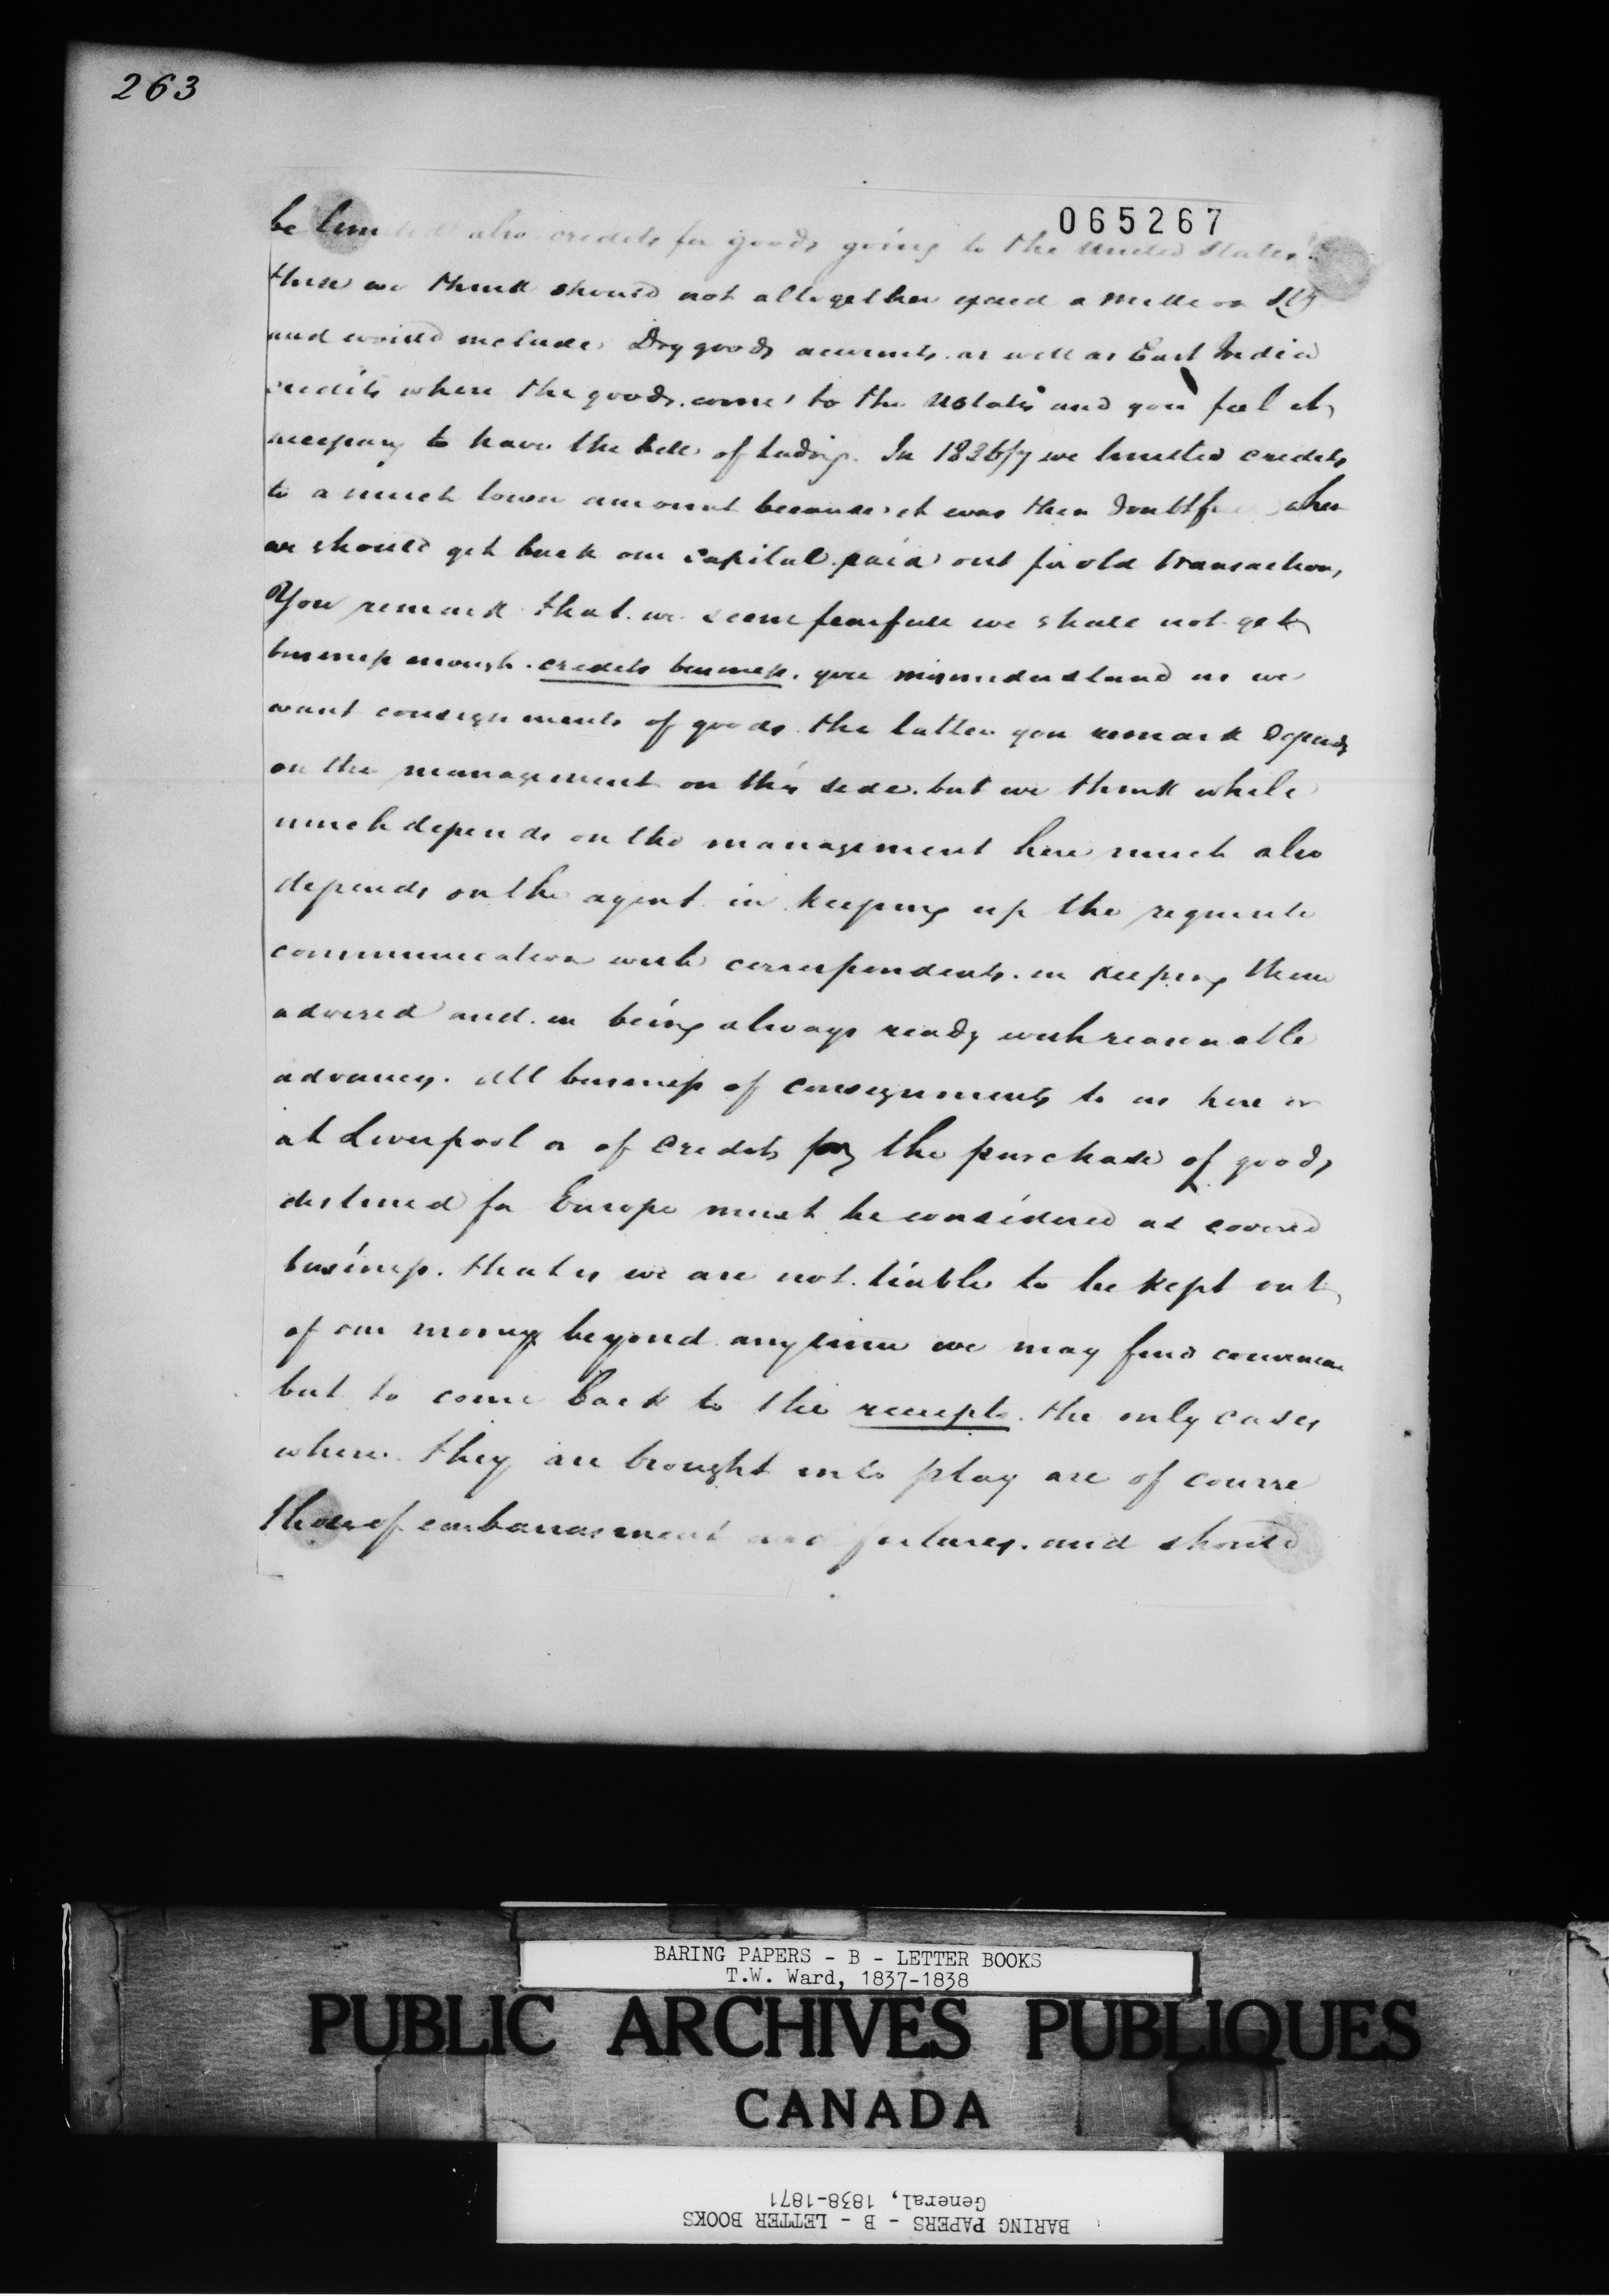 263
065267
be limited also credits for goods going to the United States.
these we think should not altogether exceed a million Stg
and would include Dry goods accounts as well as East India
credits where the goods come to the UStates and you feel it
necessary to have the bill of lading. In 1836/7 we limited credits
to a much lower amount because it was then doubtful when
we should get back our capital paid out for old transactions,
You remark that we seem fearfull we shall not get
business enough. credits business. you misunderstand us we
want consignments of goods the latter you remark depends
on the management on this side. but we think while
much depends on the management here much also
depends on the agent in keeping up the requisite
communication with correspondents. in keeping them
advised and in being always ready with reasonable
advances. All business of consignments to us here or
at Liverpool or of credits for the purchase of goods
destined for Europe must be considered as covered
business. that is we are not liable to be kept out
of our money beyond any time we may find convenient
but to come back to the receipts. the only cases
where they are brought into play are of course
those of embarrasment and failures. and should
BARING PAPERS - B - LETTER BOOKS
T.W. Ward, 1837-1838
PUBLIC ARCHIVES PUBLIQUES
CANADA
BARING PAPERS - B - LETTER BOOKS
General, 1838-1871